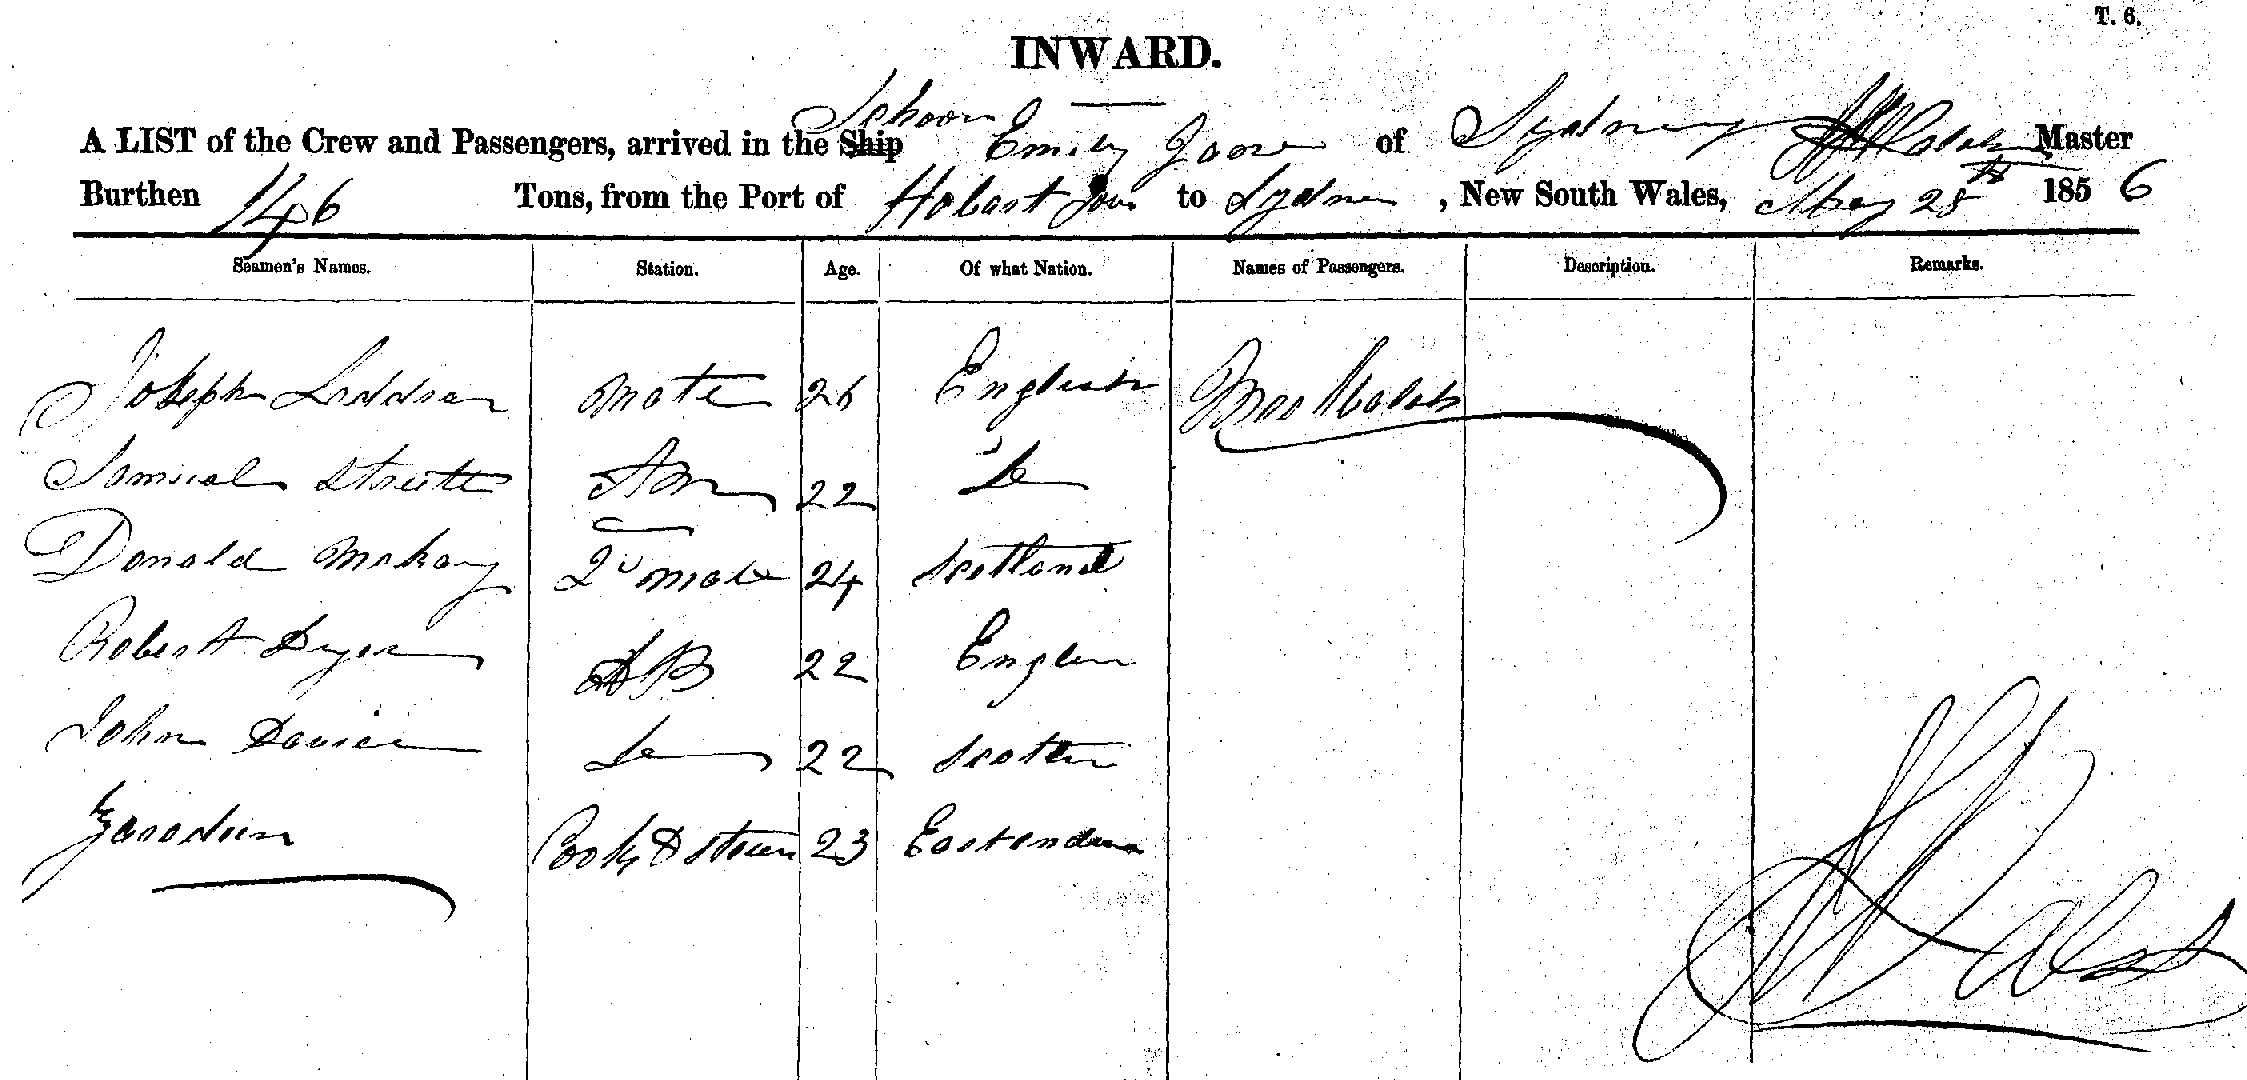 T. 6.
INWARD.
Schoon
A LIST of the Crew and Passengers, arrived in the Ship Emily Jane of Sydney Master
Burthen 146 Tons, from the Port of Hobart Town to Sydney, New South Wales, May 28th 1856
Seamen's Names. Station. Age. Of what Nation. Names of Passengers. Description. Remarks.
Joseph mate 26 English Mrs
Samuel 22 Do
Donald Mckay 2d mate 24 Scotland
Robert Dyer AB 22 Englan
John Davies Do 22
Cook & Stew 23 East